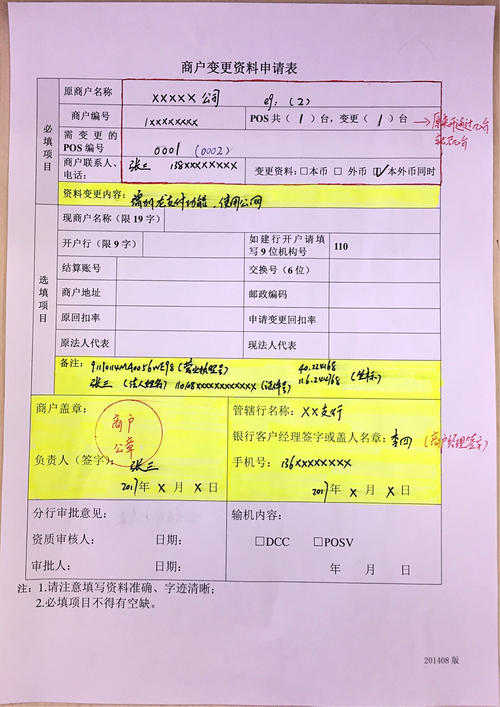 商户变更资料申请表
必填项目
原商户名称 XXXXX 公司 eg:(2)
商户编号 1XXXXXXXX POS 共( 1 )台,变更( 1 )台
需变更的POS 编号 0001 (0002)
商户联系人、电话: 张三 138XXXXXXXX 变更资料:□本币 □ 外币 ☑本外币同时
资料变更内容: 增加龙支付功能,使用公网
选填项目
现商户名称(限 19 字)
开户行(限 9 字) 如建行开户请填写 9 位机构号 110
结算账号 交换号(6 位)
商户地址 邮政编码
原回扣率 申请变更回扣率
原法人代表 现法人代表
备注: 91110114MA0056WE98 (营业执照号) 40.224168
张三 (法人姓名) 110108XXXXXXXXXXXX (证件号) 116.244168 (坐标)
商户盖章: 管辖行名称: XX支行
商户公章
银行客户经理签字或盖人名章: 李四 (客户经理签字)
负责人(签字): 张三 手机号: 136XXXXXXXX
2017年 X 月 X 日 2017年 X 月 X 日
分行审批意见: 输机内容:
资质审核人: 日期: □DCC □POSV
审批人: 日期: 年 月 日
注:1.请注意填写资料准确、字迹清晰;
2.必填项目不得有空缺。
201408 版